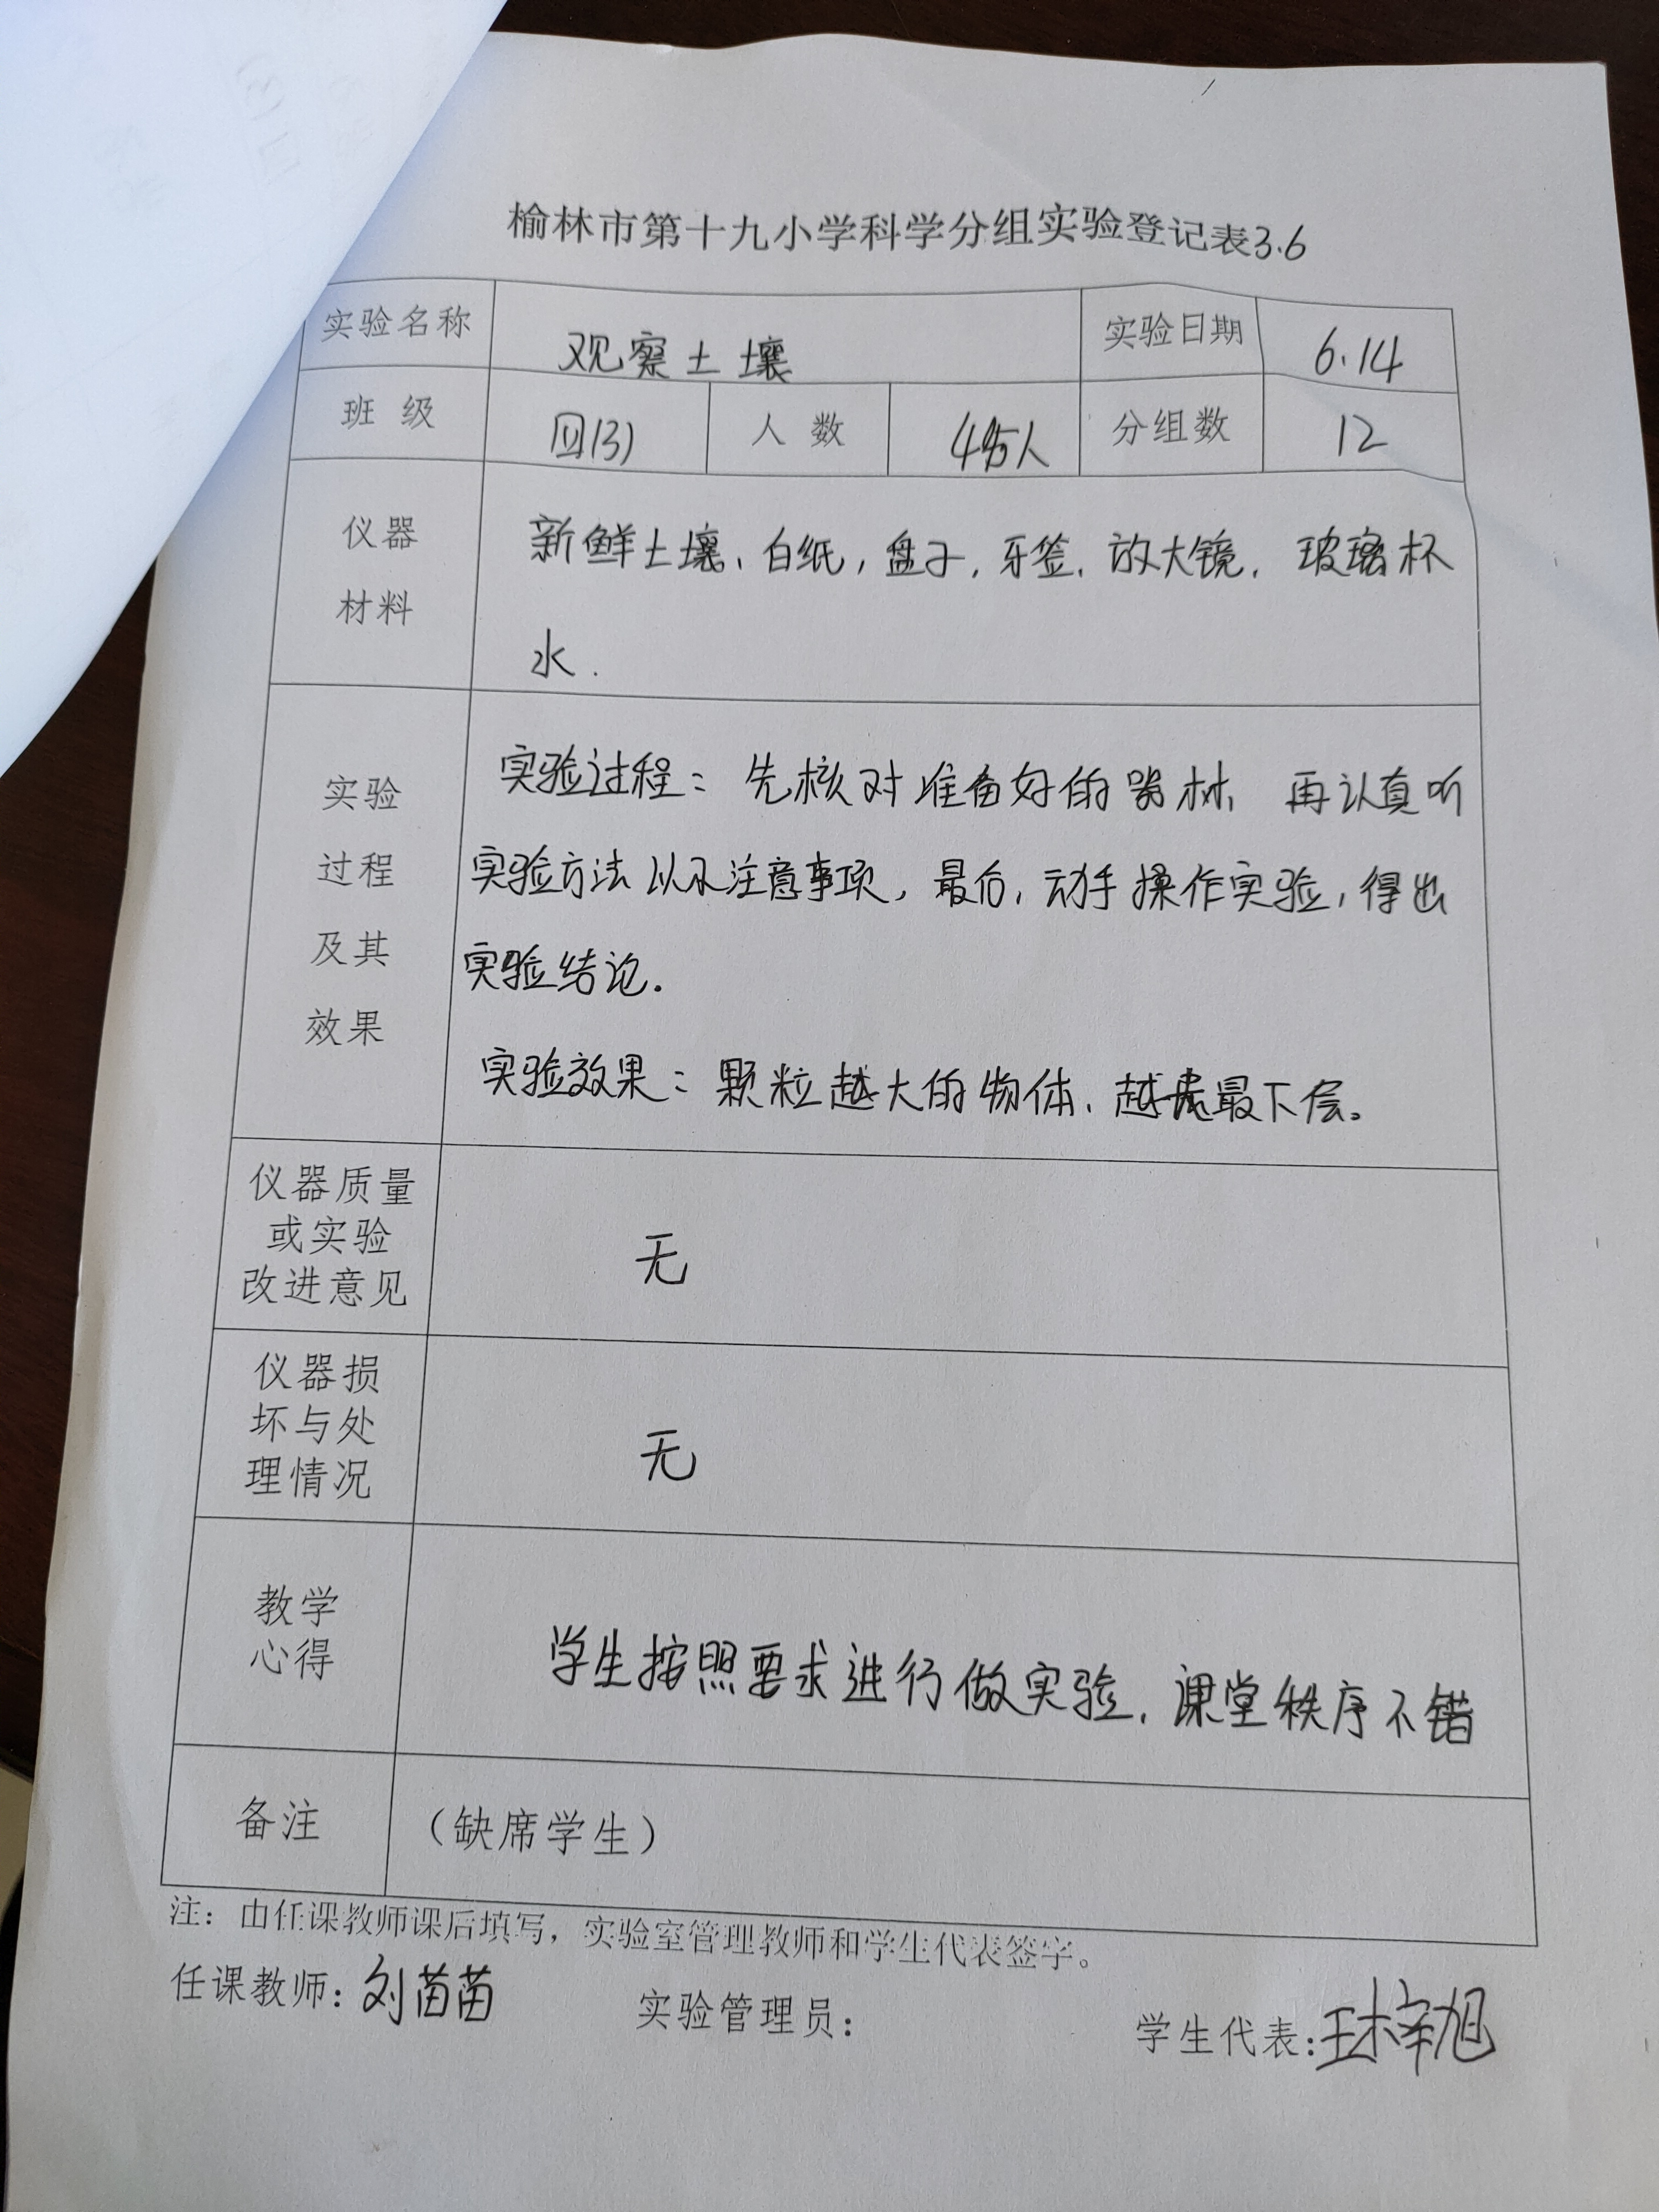 榆林市第十九小学科学分组实验登记表3.6
实验名称 观察土壤 实验日期 6.14
班 级 四(3) 人 数 人 分组数 12
仪器
材料
新鲜土壤、白纸,盘子,牙签、放大镜、玻璃杯
水.
实验
过程
及其
效果
实验过程:先核对准备好的器材,再认真听
实验方法以及注意事项,最后,动手操作实验,得出
实验结论.
实验效果:颗粒越大的物体、越最下层。
仪器质量
或实验
改进意见
无
仪器损
坏与处
理情况
无
教学
心得
学生按照要求进行做实验,课堂秩序不错
备注 (缺席学生)
注:由任课教师课后填写,实验室管理教师和学生代表签字。
任课教师:刘苗苗 实验管理员: 学生代表:王梓旭